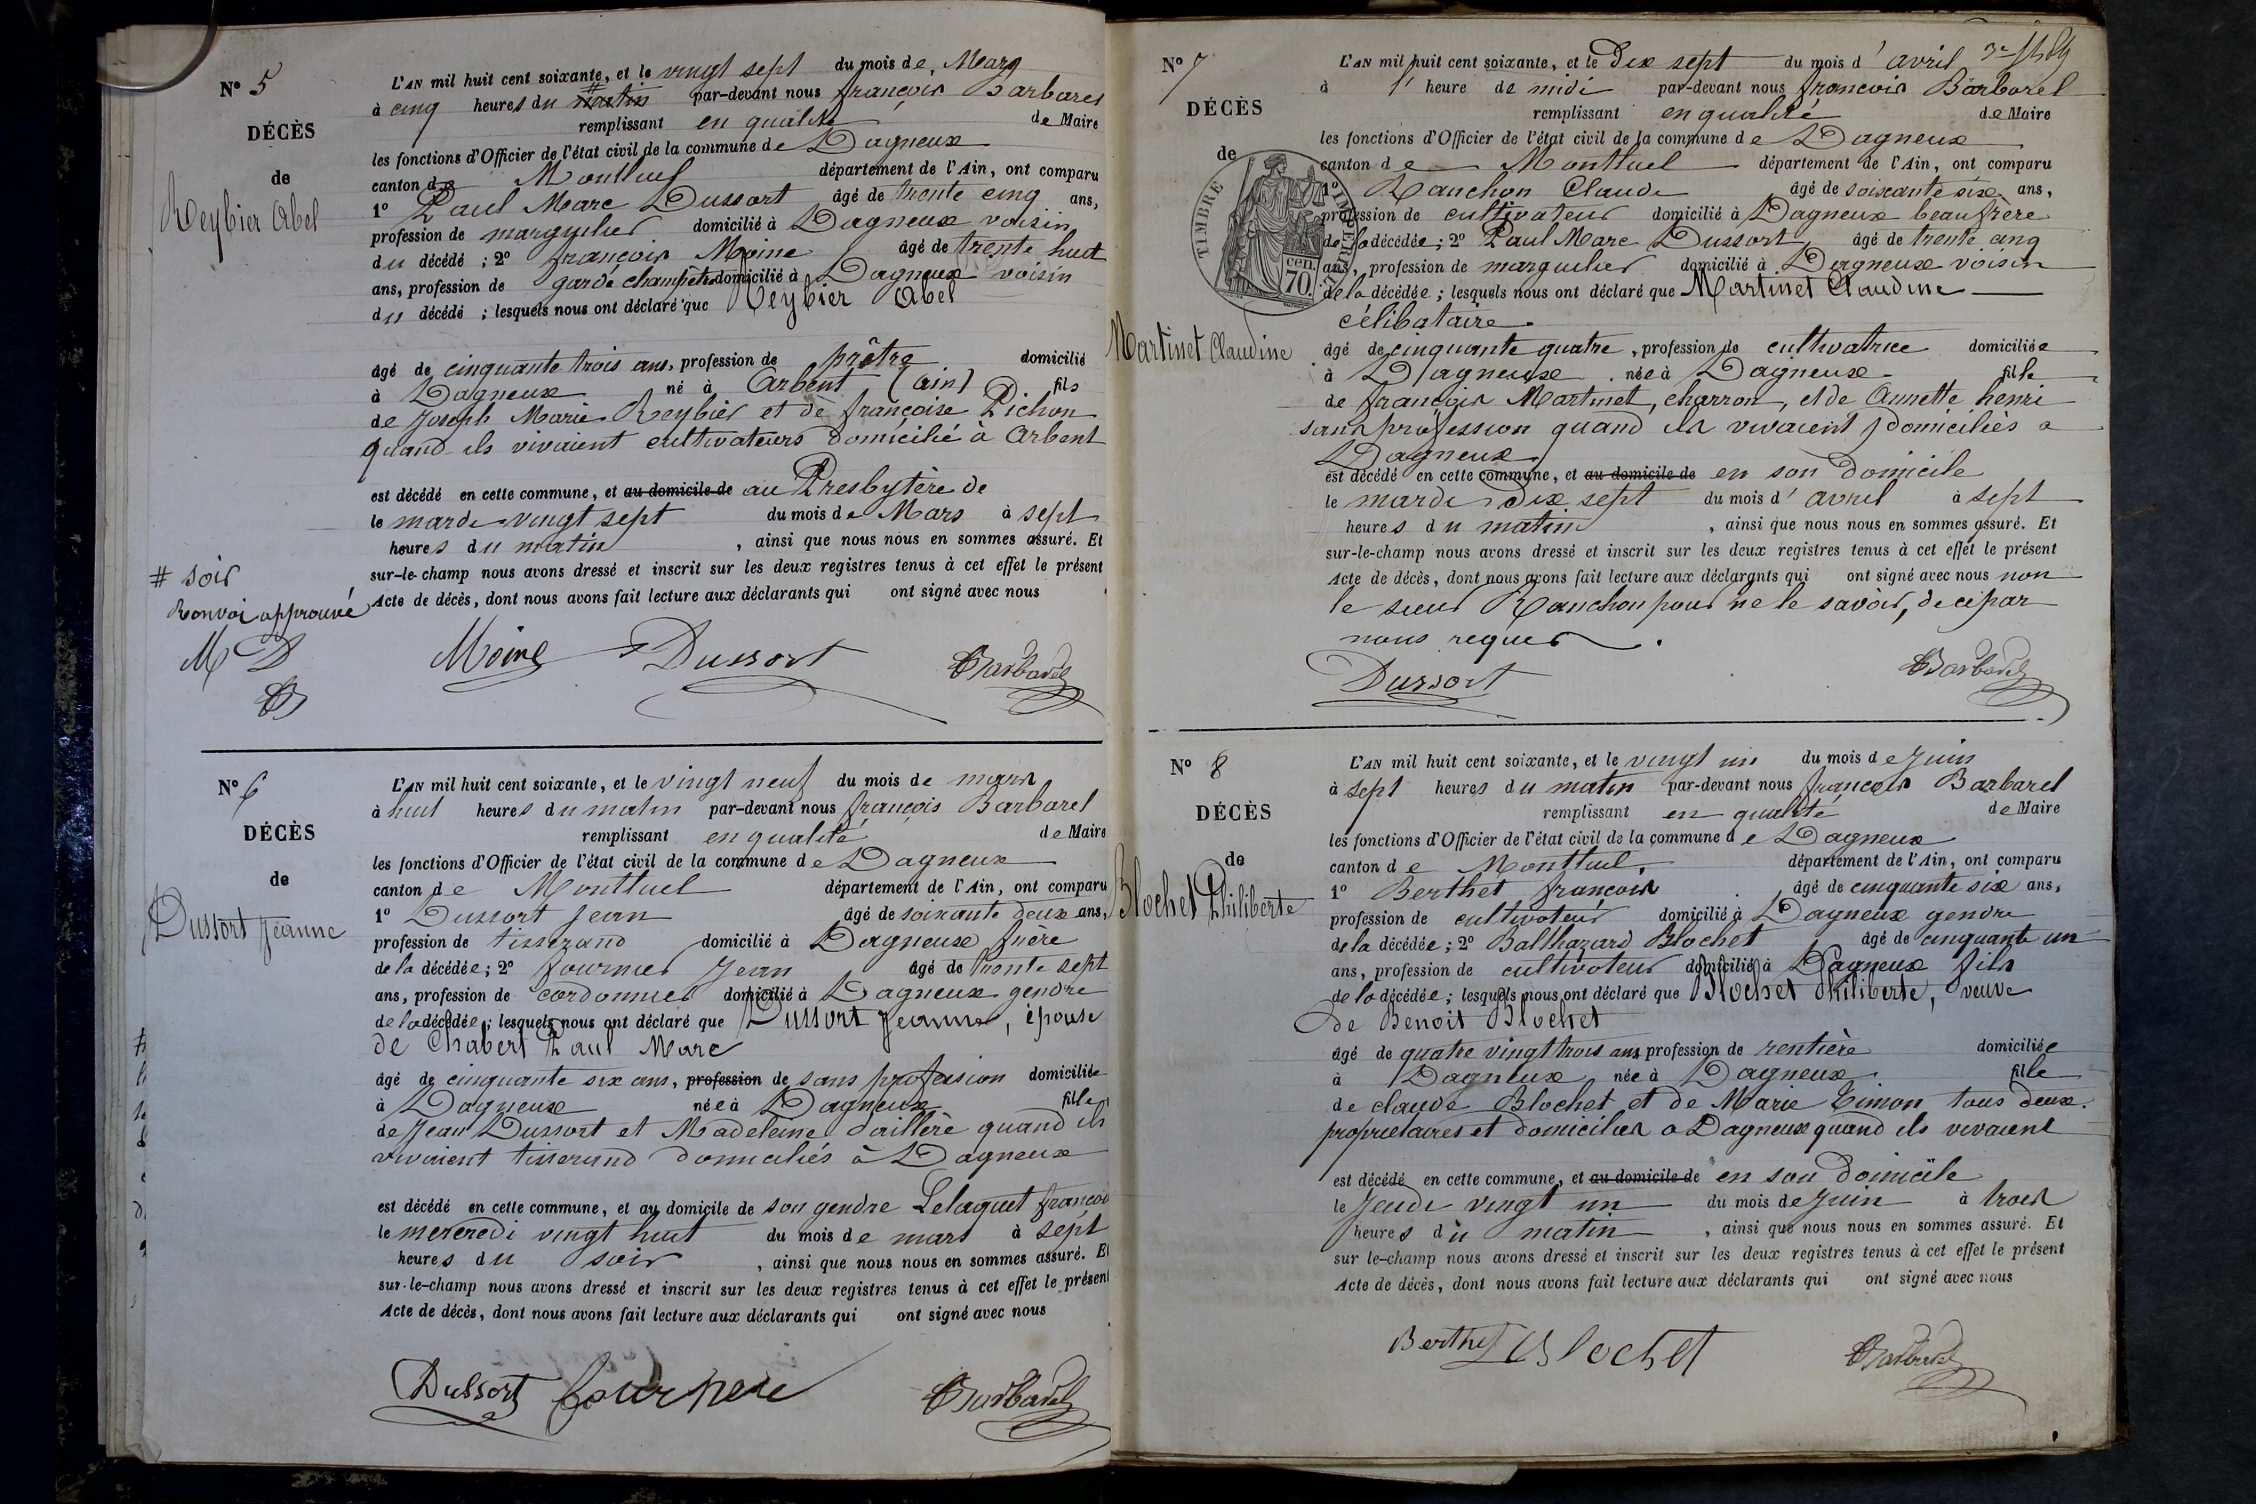 N° 5
DÉCÈS
de
Reybier Abel
L'AN mil huit cent soixante, et le vingt sept du mois de Mars
à cinq heures du matin # par-devant nous françois Barbarel
remplissant en qualité de Maire
les fonctions d'Officier de l'état civil de la commune de Dagneux
canton de Montluel département de l'Ain, ont comparu
1° Paul Marc Dussort âgé de trente cinq ans,
profession de marguelier domicilié à Dagneux voisin
du décédé ; 2° françois Moine âgé de trente huit
ans, profession de garde champêtre domicilié à Dagneux voisin
du décédé ; lesquels nous ont déclaré que Reybier Abel
âgé de cinquante trois ans, profession de prêtre domicilié
à Dagneux né à Arbent (ain) fils
de Joseph Marie Reybier et de françoise Pichon
quand ils vivaient cultivateurs domicilié à Arbent
est décédé en cette commune, et au domicile de au Presbytère de
le mardi vingt sept du mois de Mars à sept
heures du matin , ainsi que nous nous en sommes assuré. Et
sur-le-champ nous avons dressé et inscrit sur les deux registres tenus à cet effet le présent
Acte de décès, dont nous avons fait lecture aux déclarants qui ont signé avec nous
# soir
Renvoi approuvé
M D
B
Moine Dussort Barbarel
N° 6
DÉCÈS
de
Dussort Jeanne
L'AN mil huit cent soixante, et le vingt neuf du mois de mars
à huit heures du matin par-devant nous françois Barbarel
remplissant en qualité de Maire
les fonctions d'Officier de l'état civil de la commune de Dagneux
canton de Montluel département de l'Ain, ont comparu
1° Dussort Jean âgé de soixante deux ans,
profession de tisserand domicilié à Dagneux frère
de la décédée ; 2° fournier Jean âgé de trente sept
ans, profession de cordonnier domicilié à Dagneux gendre
de la décédée ; lesquels nous ont déclaré que Dussort Jeanne, épouse
de Chabert Paul Marc
âgé de cinquante six ans, profession de sans profession domiciliée
à Dagneux née à Dagneux fille
de Jean Dussort et Madeleine daillère quand ils
vivaient tisserand domiciliés à Dagneux
est décédé en cette commune, et au domicile de son gendre Lelaquet françois
le mercredi vingt huit du mois de mars à sept
heures du soir , ainsi que nous nous en sommes assuré. Et
sur-le-champ nous avons dressé et inscrit sur les deux registres tenus à cet effet le présent
Acte de décès, dont nous avons fait lecture aux déclarants qui ont signé avec nous
Dussort fournere Barbarel
N° 7
DÉCÈS
de
TIMBRE IMPÉRIAL
70 cen.
Martinet Claudine
L'AN mil huit cent soixante, et le Dix sept du mois d'avril
à 1 heure de midi par-devant nous françois Barbarel
remplissant en qualité de Maire
les fonctions d'Officier de l'état civil de la commune de Dagneux
canton de Montluel département de l'Ain, ont comparu
1° Ranchon Claude âgé de soixante six ans,
profession de cultivateur domicilié à Dagneux beaufrère
de la décédée ; 2° Paul Marc Dussort âgé de trente cinq
ans, profession de marguelier domicilié à Dagneux voisin
de la décédée ; lesquels nous ont déclaré que Martinet Claudine
célibataire
âgé de cinquante quatre, profession de cultivatrice domiciliée
à Dagneux née à Dagneux fille
de françois Martinet, charron, et de Annette henri
sans profession quand ils vivaient domiciliés a
Dagneux
est décédé en cette commune, et au domicile de en son domicile
le mardi dix sept du mois d'avril à sept
heures du matin , ainsi que nous nous en sommes assuré. Et
sur-le-champ nous avons dressé et inscrit sur les deux registres tenus à cet effet le présent
Acte de décès, dont nous avons fait lecture aux déclarants qui ont signé avec nous non
le sieur Ranchon pour ne le savoir, de ce par
nous requer
Dussort Barbarel
N° 8
DÉCÈS
de
Blochet Philiberte
L'AN mil huit cent soixante, et le vingt un du mois de Juin
à sept heures du matin par-devant nous françois Barbarel
remplissant en qualité de Maire
les fonctions d'Officier de l'état civil de la commune de Dagneux
canton de Montluel département de l'Ain, ont comparu
1° Berthet françois âgé de cinquante six ans,
profession de cultivateur domicilié à Dagneux gendre
de la décédée ; 2° Balthazard Blochet âgé de cinquante un
ans, profession de cultivateur domicilié à Dagneux fils
de la décédée ; lesquels nous ont déclaré que Blochet Philiberte, veuve
de Benoit Blochet
âgé de quatre vingt trois ans profession de rentière domiciliée
à Dagneux née à Dagneux fille
de claude Blochet et de Marie Timon tous deux
propriétaires et domiciliés a Dagneux quand ils vivaient
est décédé en cette commune, et au domicile de en son domicile
le Jeudi vingt un du mois de Juin à trois
heures du matin , ainsi que nous nous en sommes assuré. Et
sur le-champ nous avons dressé et inscrit sur les deux registres tenus à cet effet le présent
Acte de décès, dont nous avons fait lecture aux déclarants qui ont signé avec nous
Berthet Blochet Barbarel